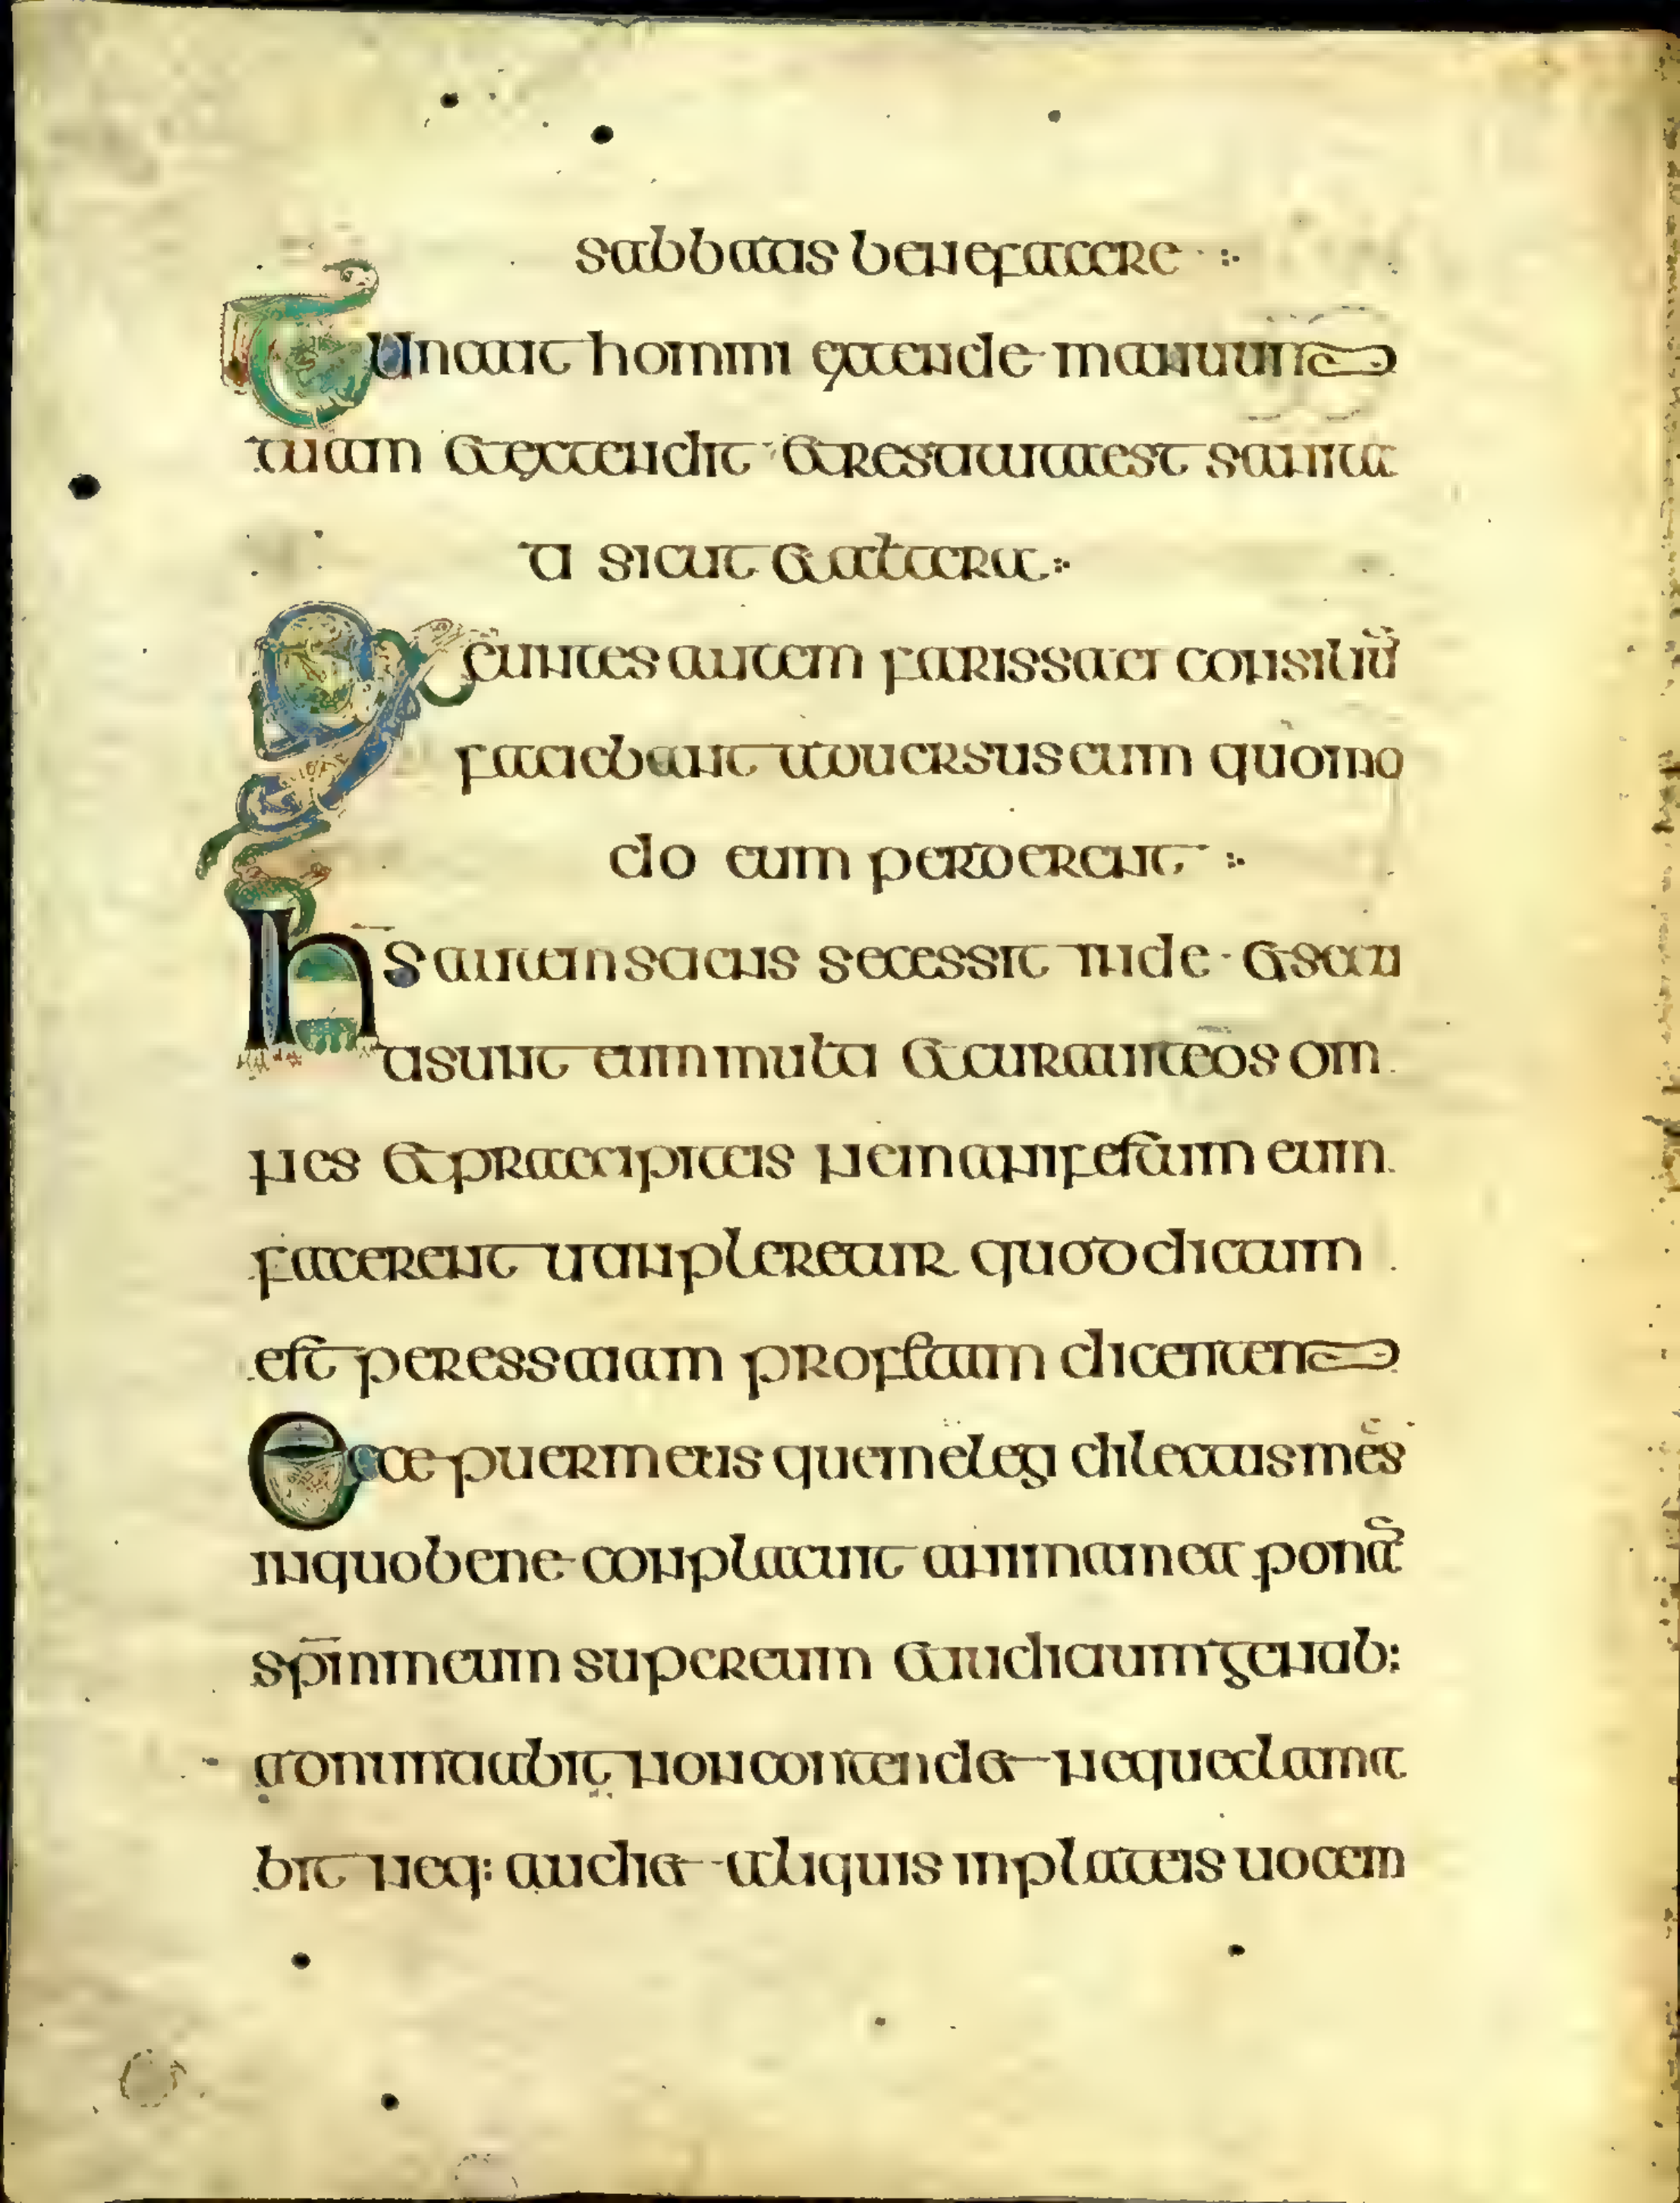 sabbatis benefacere
Tunc ait homini extende manum
tuam et extendit et restituta est sanita
ti sicut et altera
Exeuntes autem farissaei consiliū
faciebant aduersus eum quomo
do eum perderent
ihs autem sciens secessit inde et secu
ti sunt eum multi et curauit eos om
nes et praecipit eis ne manifestum eum
facerent ut adinpleretur quod dictum
est per essaiam profetam dicentem
Ecce puer meus quem elegi dilectus mēs
in quo bene conplacuit animae meae ponā
sp̄m meum super eum et iudicium gentib:
adnuntiabit non contendet neque clama
bit neq: audiet aliquis in plateis uocem